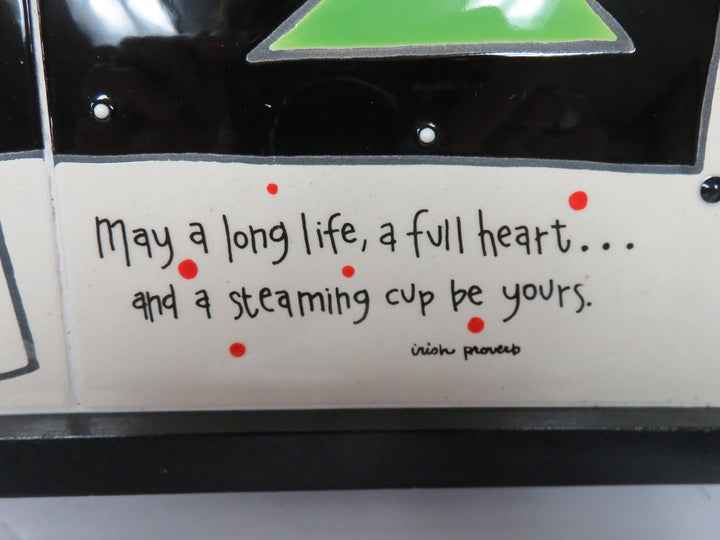 May a long life, a full heart...
and a steaming cup be yours.
irish proverb